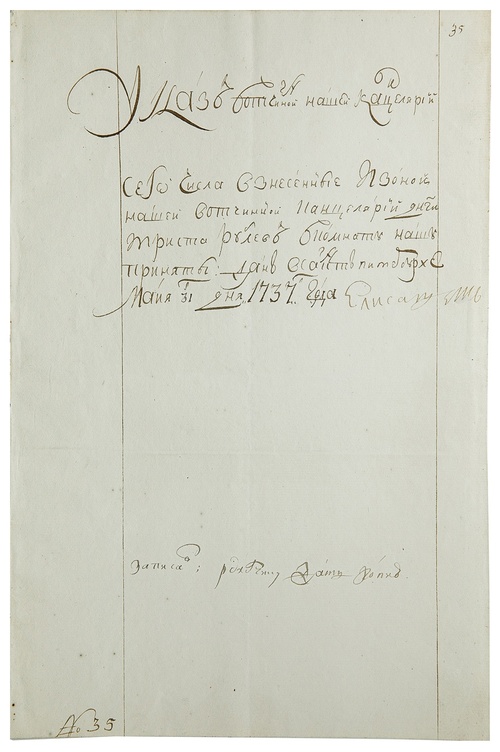 35
Указъ вотчинной нашей канцелярiи
Сего числа взнесенные изоной
нашей вотчинной канцелярiи денги
триста рублевъ вкомнату нашу
приняты: данъ всанктъпитербурхе
Маия 31 дня 1737 года Елисаветъ
записавъ: дать копию
№ 35